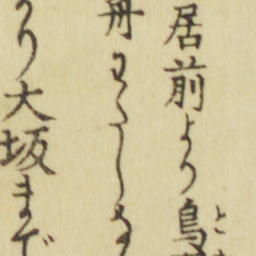 居前より鳥
舟わたしあ
り大坂まで